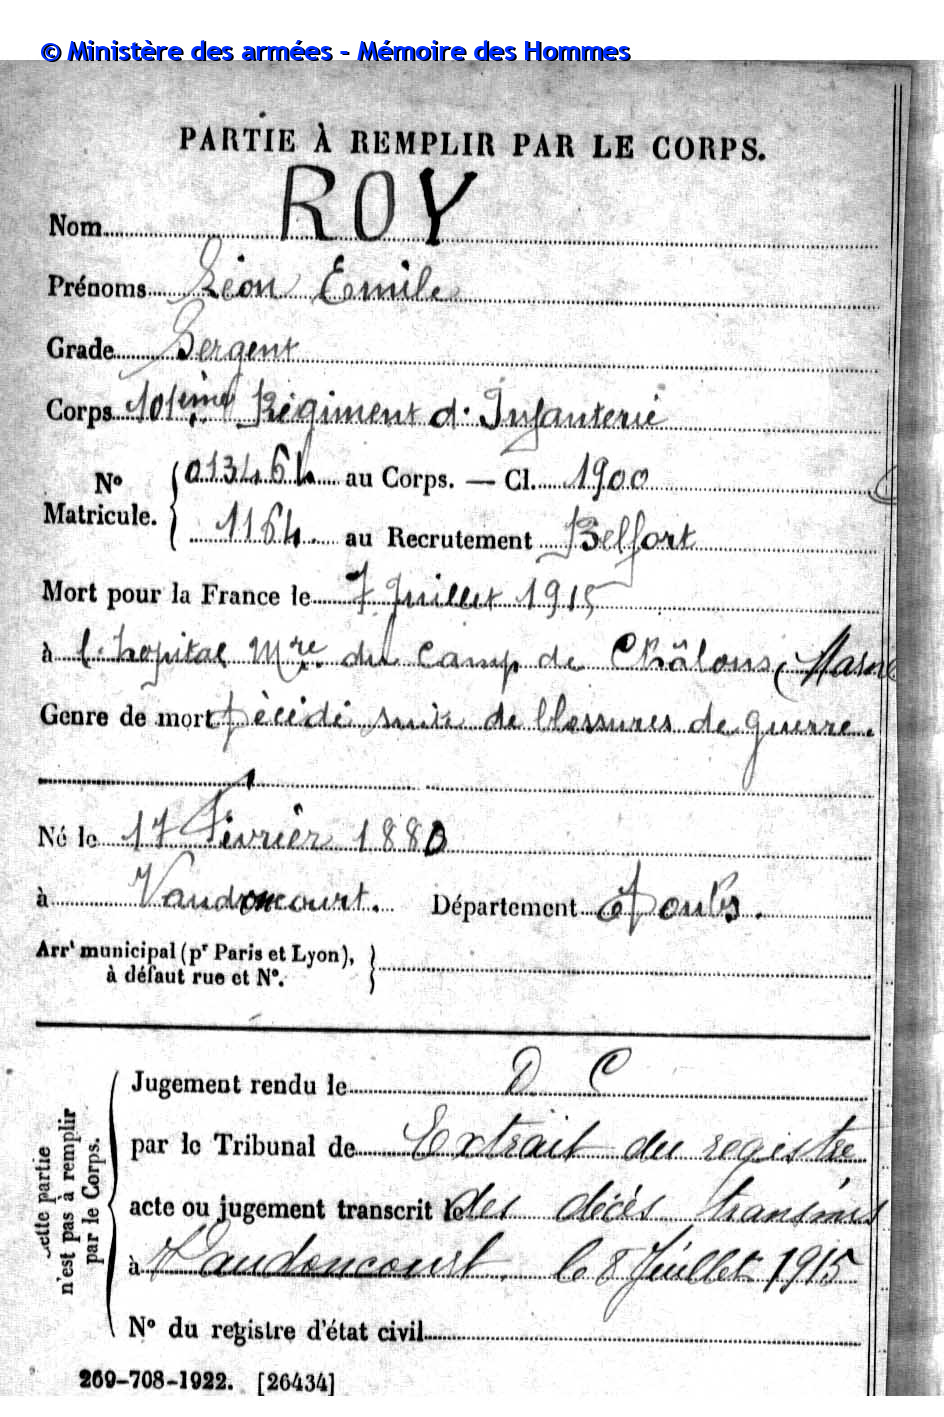 © Ministère des armées - Mémoire des Hommes
PARTIE À REMPLIR PAR LE CORPS.
Nom ROY
Prénoms Léon Emile
Grade Sergent
Corps 101ème Régiment d'Infanterie
Nº Matricule. { 013464 au Corps. — Cl. 1900
1164 au Recrutement Belfort
Mort pour la France le 7 Juillet 1915
à l'hopital Mre du Camp de Châlons (Marne
Genre de mort Décédé suite de blessures de guerre.
Né le 17 Février 1880
à Vandoncourt. Département Doubs.
Arrt municipal (pr Paris et Lyon), }
à défaut rue et Nº.
Cette partie
n'est pas à remplir
par le Corps.
Jugement rendu le D C
par le Tribunal de Extrait du registre
acte ou jugement transcrit le des décès transmis
à Vandoncourt. le 8 Juillet 1915
Nº du registre d'état civil
269-708-1922. [26434]